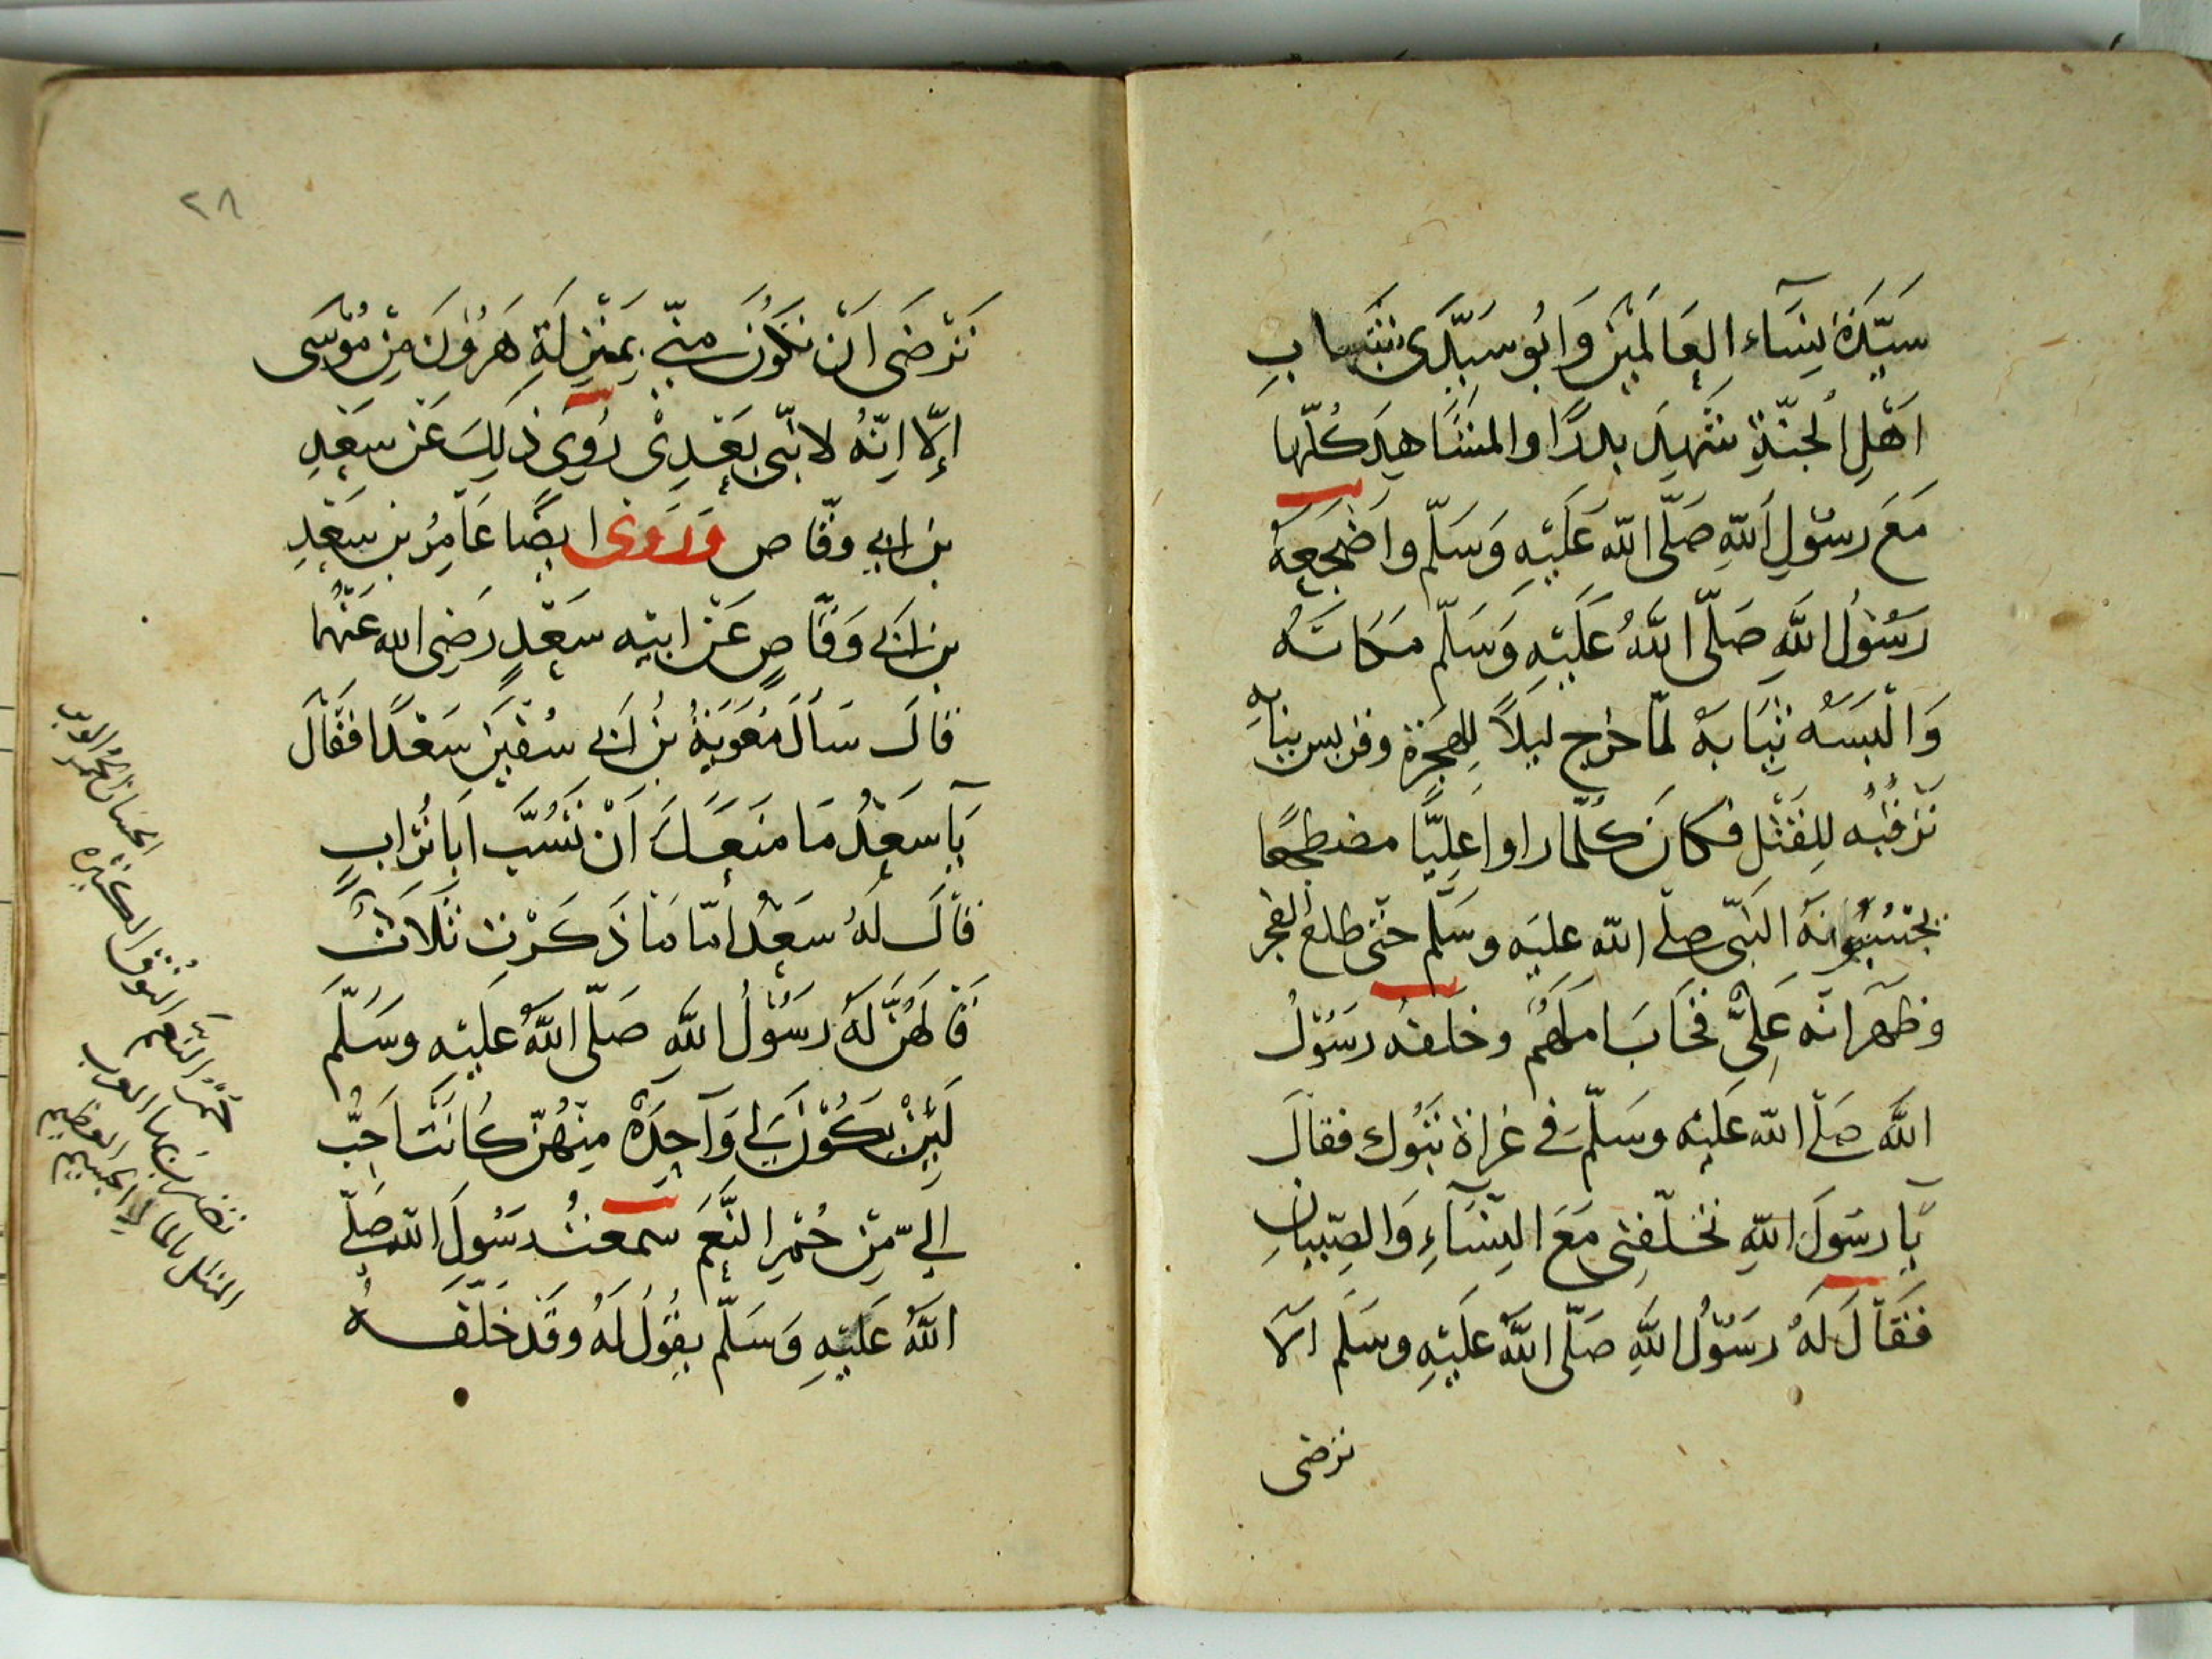 سَيِّدَةَ نِسَآءِ العَالَمِيْنَ وَابُو سَيِّدَى شَبَابِ
اَهْلِ الجنّةِ شَهِدَ بدرًا والمشَاهِدَ كُلّها
مَعَ رسُوْلِ اللهِ صَلَّى اللّه عَلَيْهِ وَسَلّم واَضْجَعهُ
رَسُوْلُ اللهِ صَلّى اللَّهُ عَلَيْهِ وَسَلّم مَكانَهُ
وَالْبَسَهُ ثِيَابَهُ لمّا خرج ليلاً لِلهِجْرَةِ وقريس بِبَابِهِ
تَرْقُبُه لِلقَتْلِ فكانَ كُلّما راوا عَلِيًّا مضطجعًا
يحْسَبُوْنَهُ النّبَىّ صلّى اللّه عليَه وسَلّم حتّى طلع الفجر
وظَهَرَ انّه عَلِىٌّ فخَابَ املهُم وخلفهُ رسُوْلُ
اللَّه صَلّى اللّه عَليْه وسَلّم فى غزاة تبُوك فقالَ
يَآ رسُولَ اللّهِ تخلّفنِى مَعَ النِّسَآءِ وَالصِّبيانِ
فَقَالَ لَهُ رسُوْلُ اللَّهِ صَلّى اللَّهُ عَلَيْهِ وسَلم الَا
ترضى
٢٨
تَرْضَى اَنْ تكُوْنَ مِنّي بِمَنْزِلَةِ هَرُوْنَ مِنْ مُوْسَى
اِلّا اِنّهُ لا نَبّى بَعْدِىْ رُوِىَ ذلِكَ عَنْ سَعْدِ
بن ابي وقّاص وَرَوَى ايضًا عَامِرُ بن سَعْدِ
بن ابي وَقّاصٍ عَنْ ابيْه سَعْدٍ رَضِى الله عَنْهُما
قالَ سَأَلَ مُعَوِيَةُ بْنُ ابي سُفْيٰنَ سَعْدًا فَقَالَ
يَآ سَعْدُ مَا مَنَعَكَ اَنْ تَسُبَّ اَبَا تُرَابٍ
قالَ لَهُ سَعْدُ امّا مَا ذَكَرْتَ ثَلَاثٌ
قَالَهُنَّ لَهُ رسُوْلُ اللَّهِ صَلّى اللَّهُ عَليْهِ وسَلَّمَ
لَئِنْ يكُوْنَ لِي وَاحِدَةٌ مِنْهُنّ كَانَتْ اَحَبُّ
اِلَيّ مِنْ حُمْرِ النَّعَمِ سمعتُ رسُولَ اللّه صَلّى
اللَّهُ عَلَيْهِ وَسَلّم يقُوْلُ لَهُ وقَد خَلّفَهُ
حُمْرُ النَّعَم النُوْقُ الكثيره
الحسان الحمر الوبر
تضرب بها العرب
المثل بالمال الجسيم العظيم